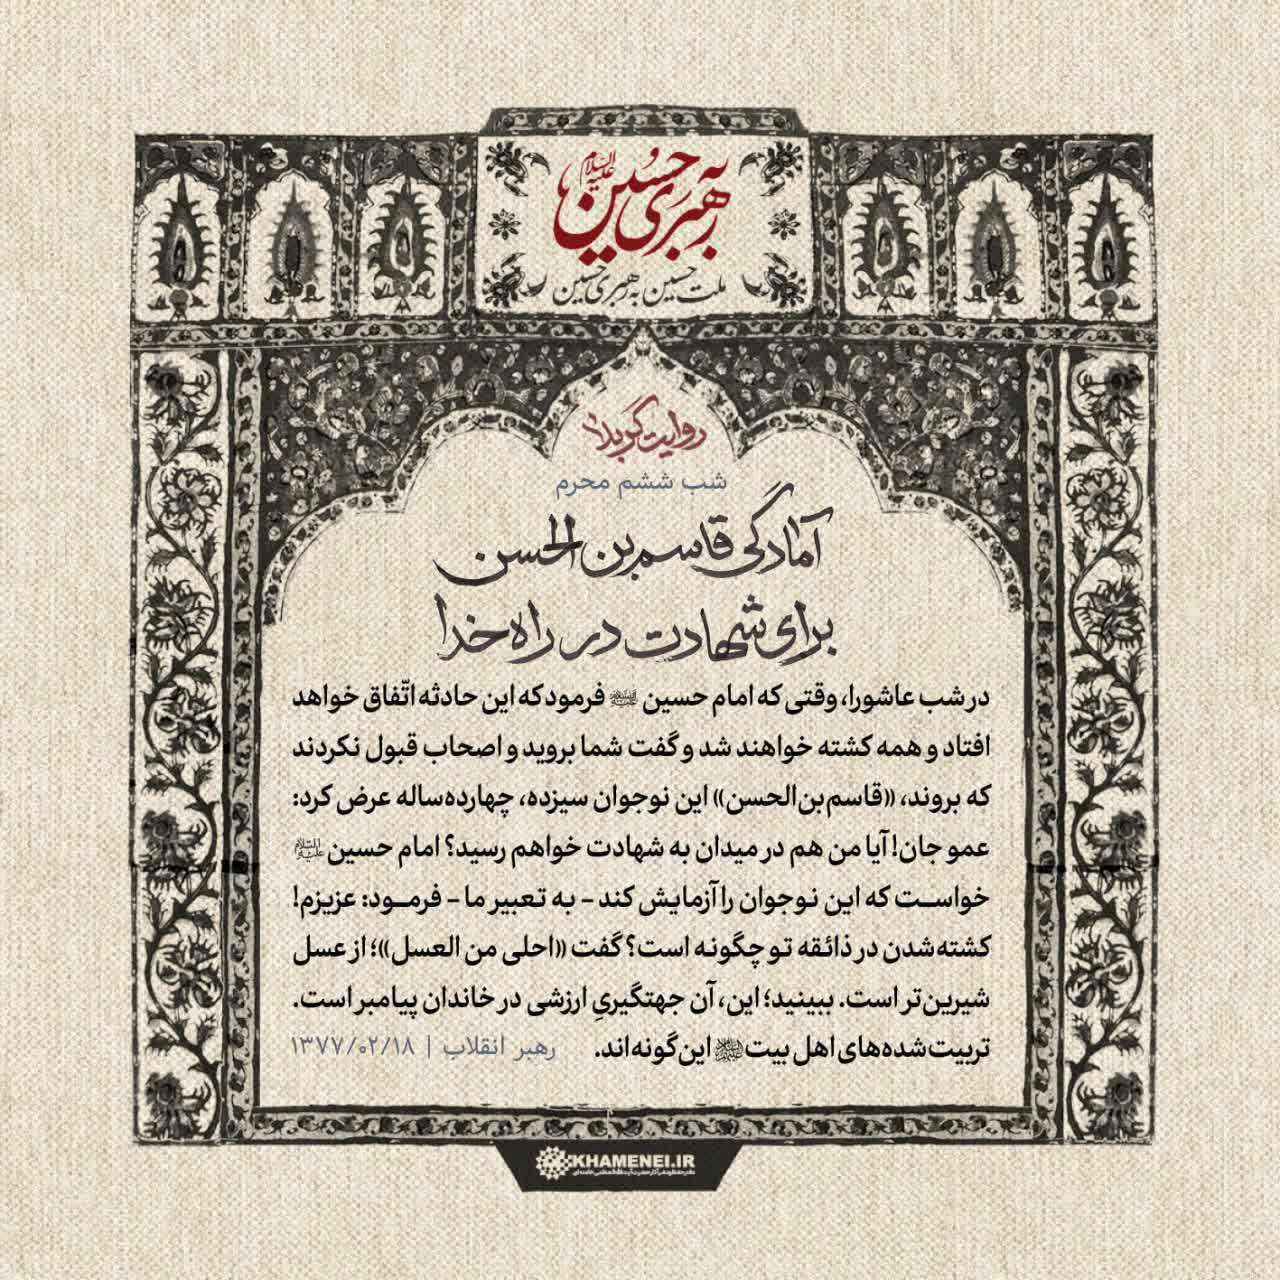 رهبری حسین علیه السلام
ملت حسین به رهبری حسین
روایت کربلا
شب ششم محرم
آمادگی قاسم بن الحسن
برای شهادت در راه خدا
در شب عاشورا، وقتی که امام حسین علیه‌السلام فرمود که این حادثه اتّفاق خواهد
افتاد و همه کشته خواهند شد و گفت شما بروید و اصحاب قبول نکردند
که بروند، «قاسم‌بن‌الحسن» این نوجوان سیزده، چهارده‌ساله عرض کرد:
عمو جان! آیا من هم در میدان به شهادت خواهم رسید؟ امام حسین علیه‌السلام
خواست که این نوجوان را آزمایش کند - به تعبیر ما - فرمود: عزیزم!
کشته‌شدن در ذائقه تو چگونه است؟ گفت «احلی من العسل»؛ از عسل
شیرین‌تر است. ببینید؛ این، آن جهتگیریِ ارزشی در خاندان پیامبر است.
تربیت‌شده‌های اهل بیت علیهم‌السلام این‌گونه‌اند.
رهبر انقلاب | ۱۳۷۷/۰۲/۱۸
KHAMENEI.IR